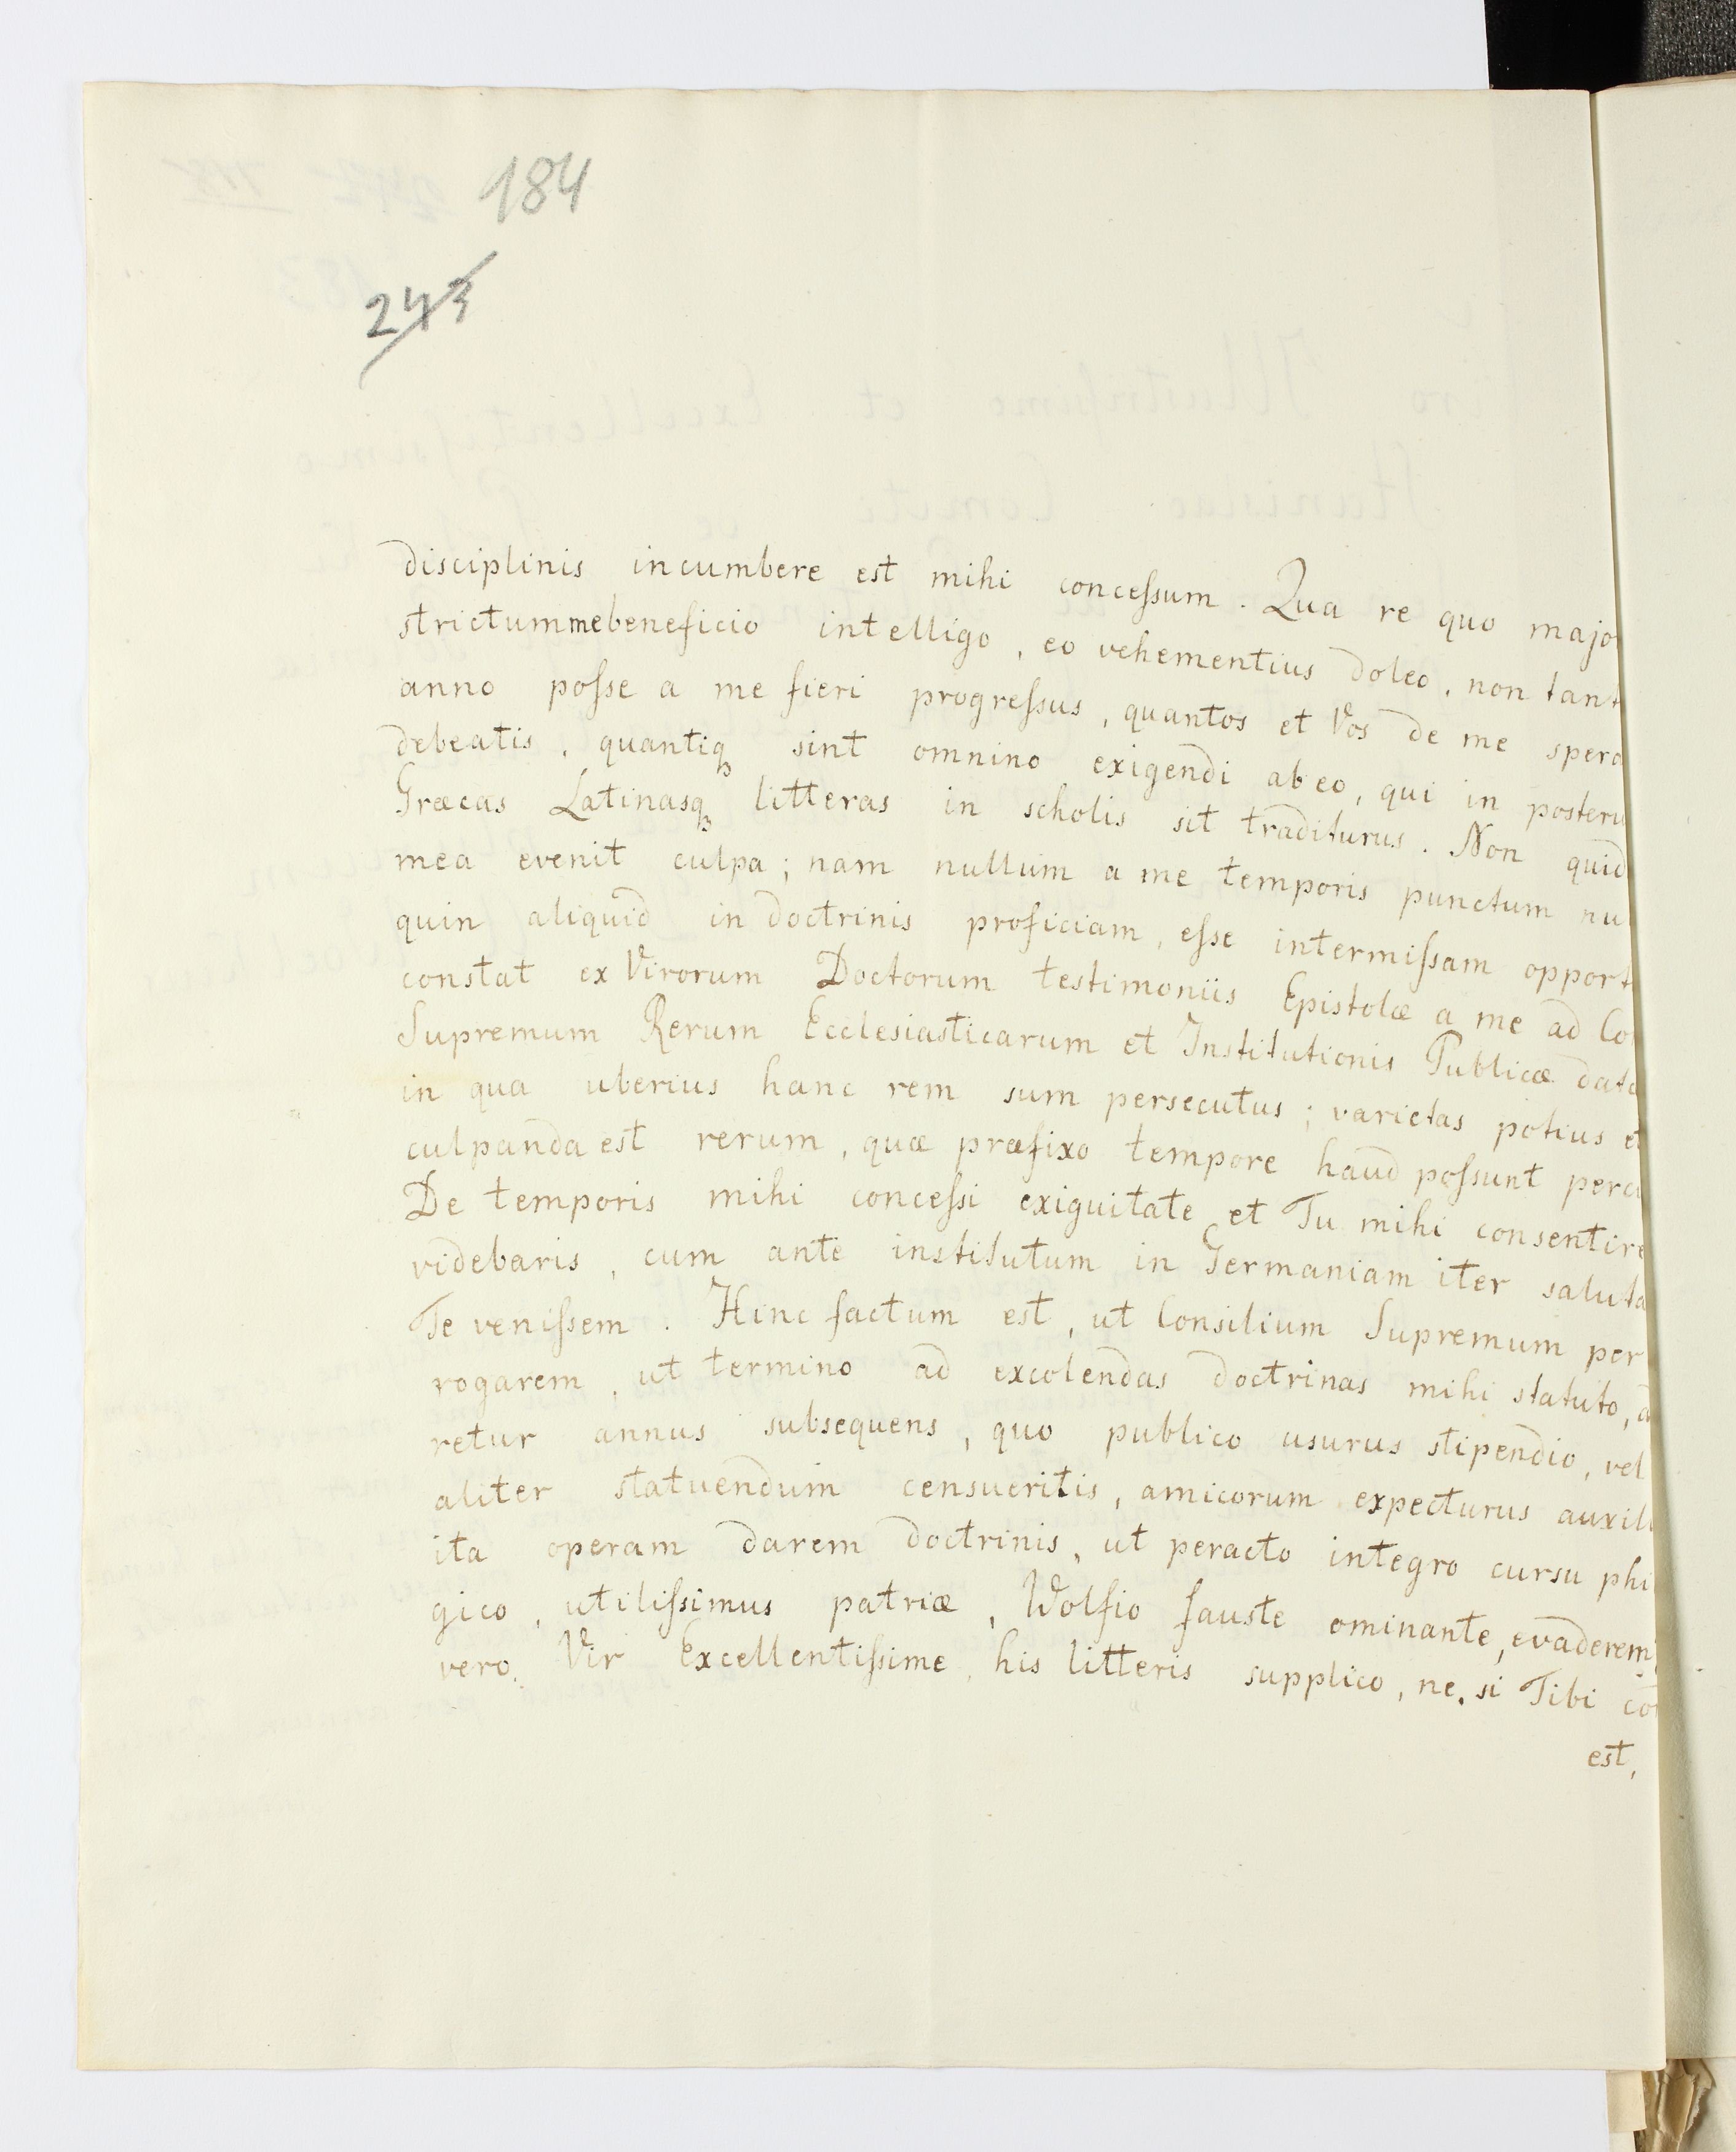 184
243
disciplinis incumbere est mihi conceſsum. Qua re quo majo
strictum me beneficio intelligo, eo vehementius doleo, non tant
anno poſse a me fieri progreſsus, quantos et Vos de me spera
debeatis, quantiqꝫ sint omnino exigendi ab eo, qui in posteru
Græcas Latinasqꝫ litteras in scholis sit traditurus. Non quid
mea evenit culpa; nam nullum a me temporis punctum nul
quin aliquid in doctrinis proficiam, eſse intermiſsam opport
constat ex Virorum Doctorum testimoniis Epistolæ a me ad Co
Supremum Rerum Ecclesiasticarum et Institutionis Publicæ data
in qua uberius hanc rem sum persecutus; varietas potius et
culpanda est rerum, quæ præfixo tempore haud poſsunt perci
De temporis mihi conceſsi exiguitate et Tu mihi consentire
videbaris, cum ante institutum in Germaniam iter saluta
Te veniſsem. Hinc factum est, ut Consilium Supremum per
rogarem, ut termino ad excolendas doctrinas mihi statuto, a
retur annus subsequens, quo publico usurus stipendio, vel
aliter statuendum censueritis, amicorum expecturus auxili
ita operam darem doctrinis, ut peracto integro cursu phi
gico, utiliſsimus patriæ, Wolfio fauste ominante, evaderem
vero, Vir Excellentiſsime, his litteris supplico, ne, si Tibi co
est,